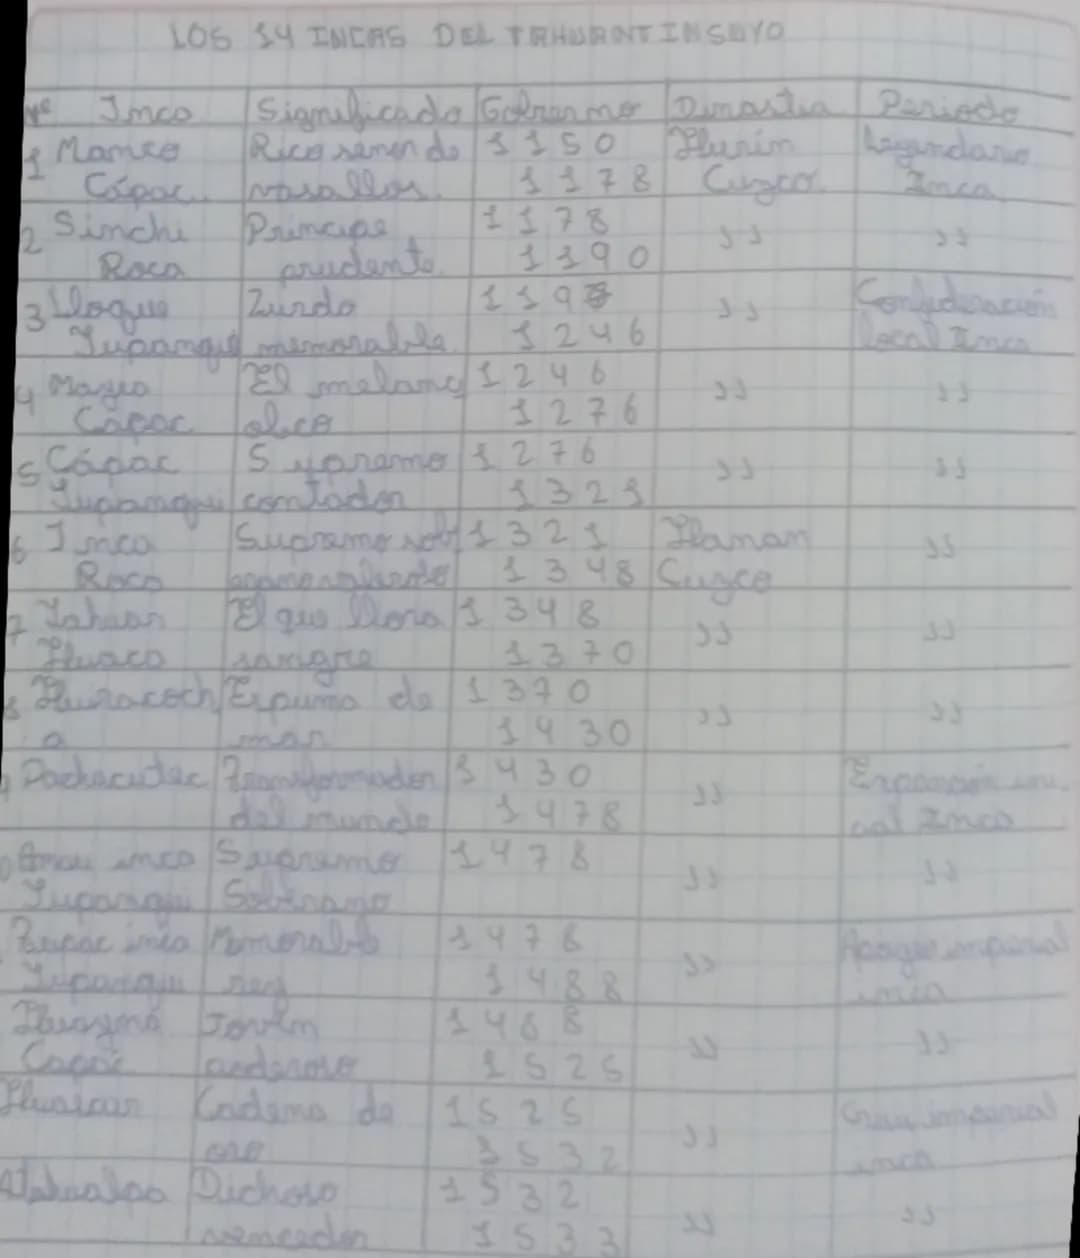 LOS 14 INCAS DEL TAHUANTINSUYO
Nº Inca Significado Gobierno Dinastia Periodo
1 Manco Rico 1150 Hurin Legendario
Cápac vasallos. 1178 Cuzco. Inca
2 Sinchi Principe 1178 ,, ,,
Roca prudente. 1190
3 Lloque Zurdo 1197 ,, Confederación
Yupanqui memorable. 1246 local Inca
4 Mayta El melanc 1246 ,, ,,
Capac olico 1276
5 Cápac Supremo 1276 ,, ,,
Yupanqui contador 1321
6 Inca Supremo 1321 Hanan ,,
Roca 1348 Cuzco
7 Yahuar El que llora 1348 ,, ,,
Huaca sangre 1370
8 Huiracoch Espuma de 1370 ,, ,,
a mar 1430
Pachacutec Transformador 1430 ,, Expansión
del mundo 1478 Inca
inca Supremo 1478 ,, ,,
Yupanqui Soberano
Tupac inca Memorable 1478 ,, Apogeo imperial
Yupanqui rey 1488 inca
Huayna Joven 1488 ,, ,,
Capac poderoso 1525
Huascar Cadena de 1525 ,, imperial
oro 1532 inca
Atahualpa Dichoso 1532 ,, ,,
vencedor 1533